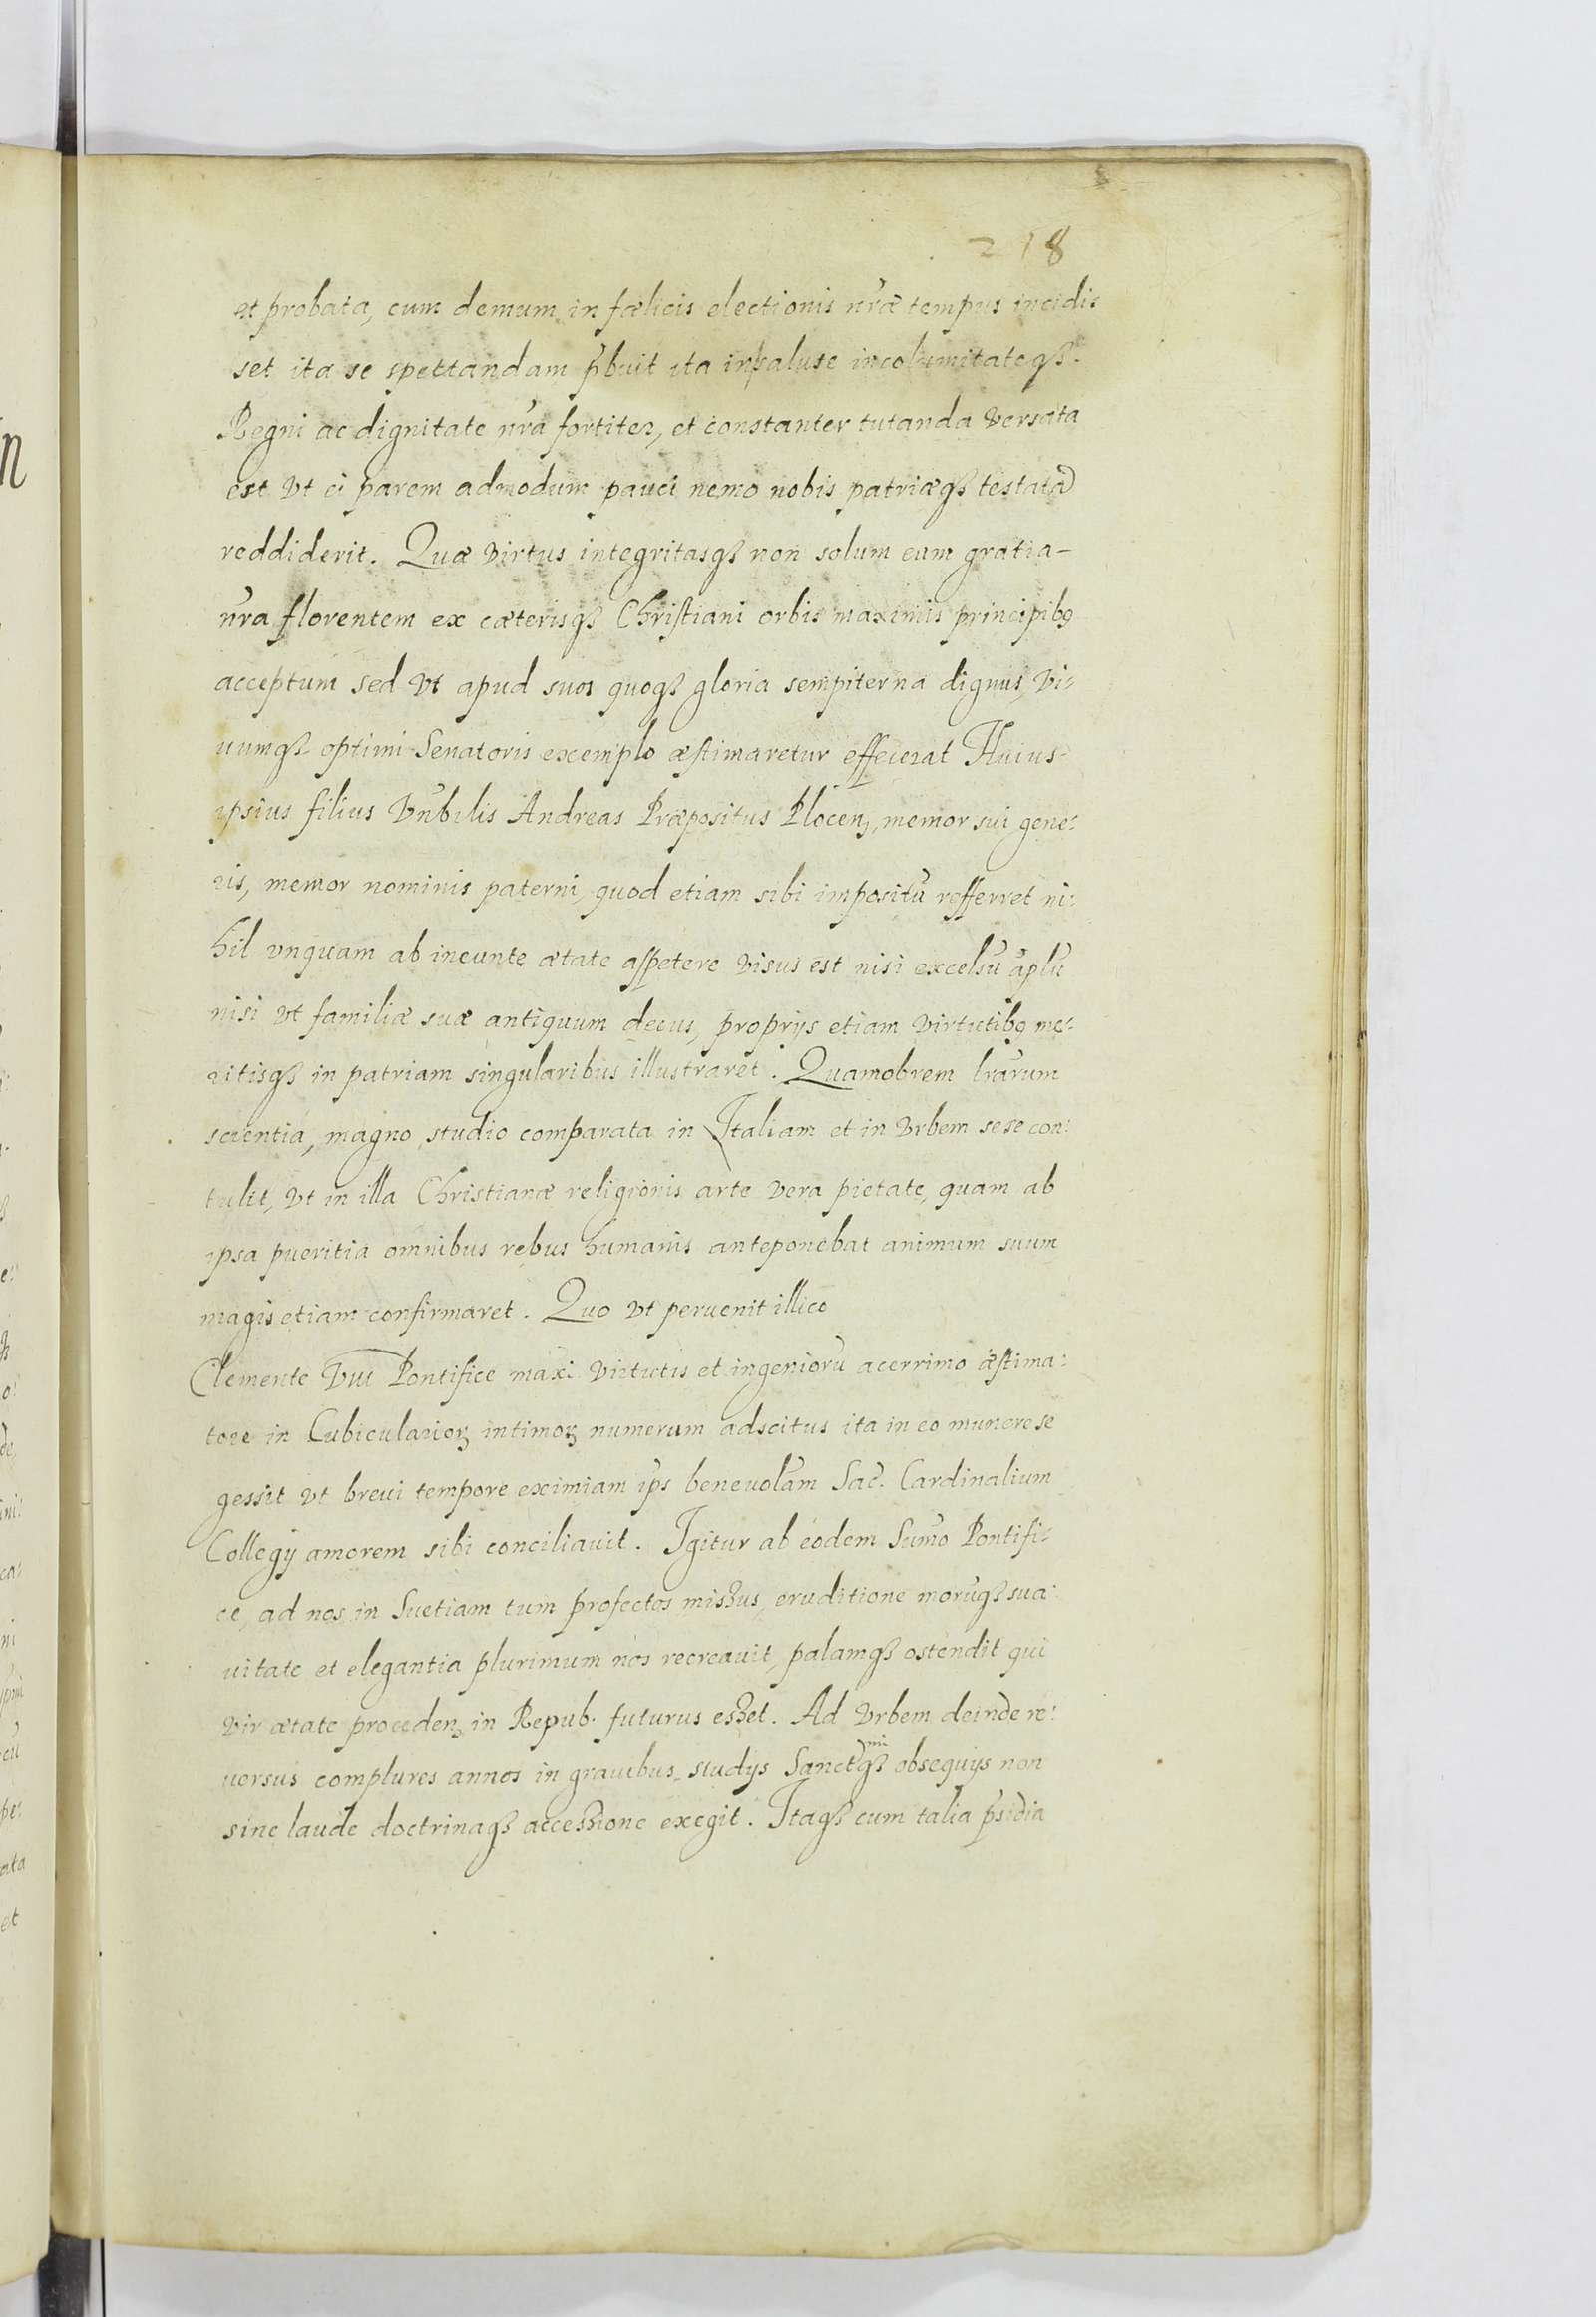 218
et probata, cum demum in fælicis electionis nr̃æ tempus incidis
set ita se spettandam p̃buit ita in salute incolumitateqȝ.
Regni ac dignitate nr̃a fortiter, et constanter tutanda versata
est vt ei parem admodum pauci nemo nobis patriæqȝ testatã
reddiderit. Quæ virtus integritasqȝ non solum eum gratia-
nr̃a florentem ex cæterisqȝ Christiani orbis maximis principibꝰ
acceptum sed vt apud suos quoqȝ gloria sempiterna dignus, vi:
uumqȝ optimi Senatoris exemplo æstimaretur effecerat Huius-
ipsius filius Vn̄bilis Andreas Præpositus Plocenȝ, memor sui gene:
ris, memor nominis paterni, quod etiam sibi impositũ refferret ni:
hil vnquam ab ineunte ætate aspetere visus est nisi excelsũ ãplũ
nisi vt familiæ suæ antiquum decus, proprijs etiam virtutibꝰ me:
ritisqȝ in patriam singularibus illustraret. Quamobrem lr̃arum
scientia, magno studio comparata in Italiam et in Vrbem sese con:
tulit, vt in illa Christianæ religionis arte vera pietate, quam ab
ipsa pueritia omnibus rebus humanis anteponebat animum suum
magis etiam confirmaret. Quo vt peruenit illico
Clemente Viii Pontifice maxi virtutis et ingeniorũ acerrimo æstima:
tore in Cubiculariorȝ intimorȝ numerum adscitus ita in eo munere se
gessit vt breui tempore eximiam ip̃s beneuolãm Sac̃. Cardinalium
Collegij amorem sibi conciliauit. Igitur ab eodem Sum̃o Pontifi:
ce, ad nos in Suetiam tum profectos missus, eruditione morũqȝ sua:
uitate et elegantia plurimum nos recreauit, palamqȝ ostendit qui
vir ætate procedenȝ in Repub. futurus esset. Ad Vrbem deinde re:
uersus complures annos in grauibus studijs Sanctmiqȝ obsequijs non
sine laude doctrinaqȝ accessione exegit. Itaqȝ cum talia p̃sidia